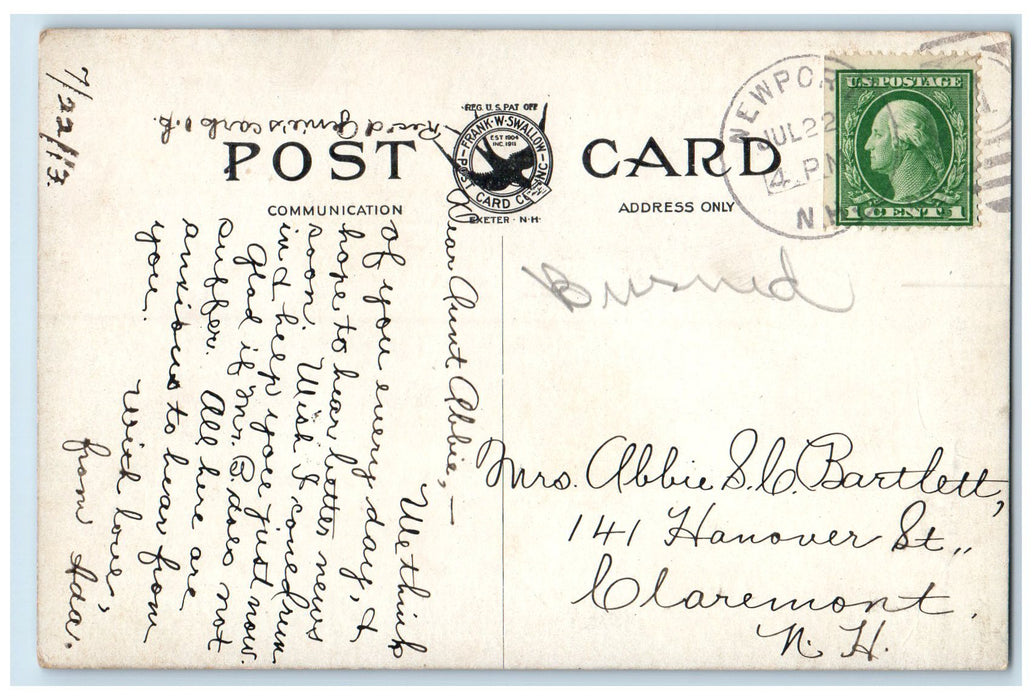 REG. U.S. PAT OFF
FRANK·W·SWALLOW
POST CARD CO. INC.
EST 1904
INC. 1911
EXETER·N·H·
POST CARD
COMMUNICATION
ADDRESS ONLY
NEWPORT
JUL 22
4 PM
N.H.
U.S. POSTAGE
1 CENT 1
7/22/13.
Rec'd Genie's card O.K.
Dear Aunt Abbie,—
We think
of you every day, &
hope to hear better news
soon. Wish I could run
in & help you just now.
Glad if Mrs. B. does not
suffer. All here are
anxious to hear from
you.
With love,
from Ada.
Burned
Mrs. Abbie S. C. Bartlett,
141 Hanover St.,
Claremont,
N. H.